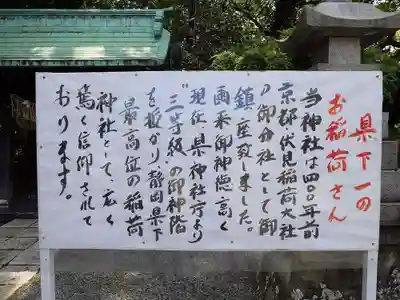 県下一の
お稲荷さん
当神社は四〇〇年前
京都伏見稲荷大社
の御分社として御
鎮座致しました。
爾来御神徳高く
現在県神社庁より
"三等級"の御神階
を授かり静岡県下
最高位の稲荷
神社として、広く
篤く信仰されて
おります。